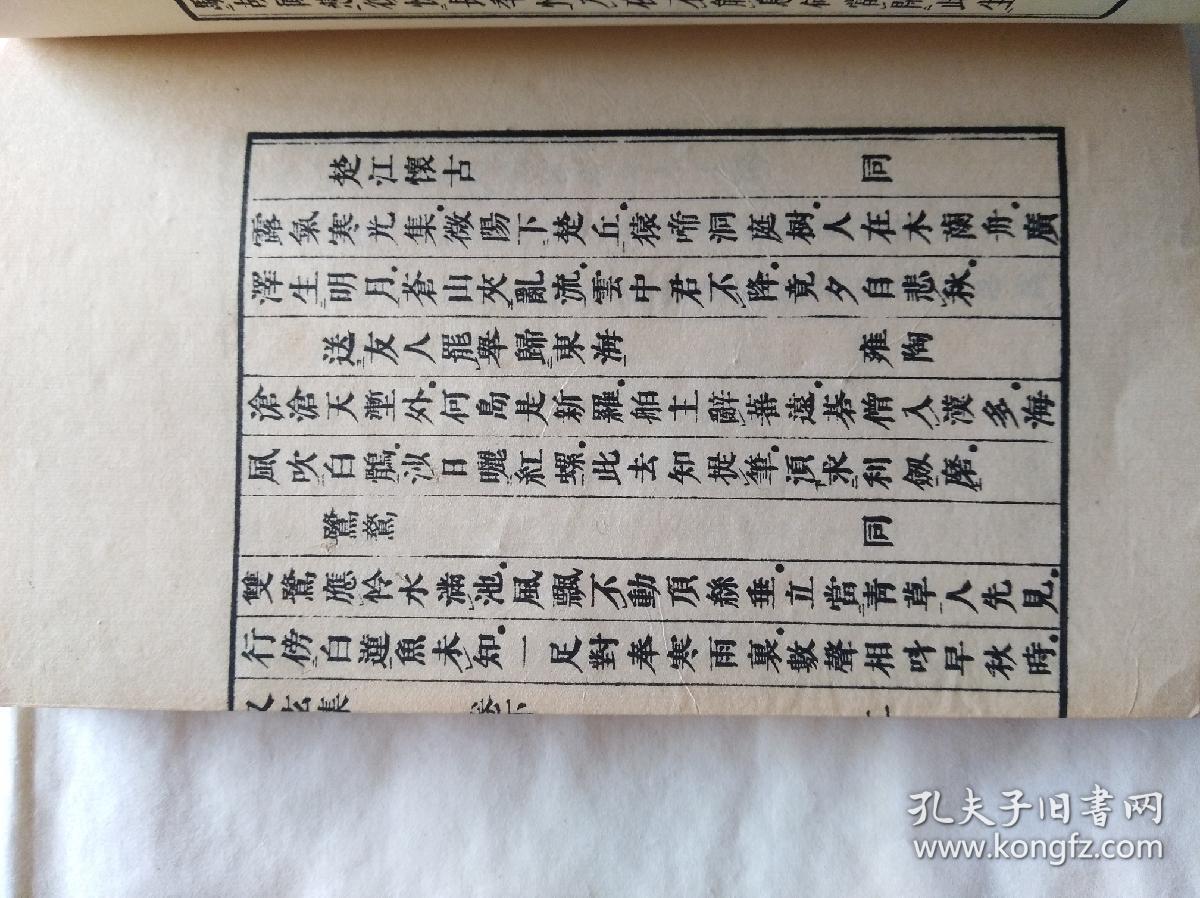 楚江懷古 同
露氣寒光集。微陽下楚丘。猿啼洞庭樹。人在木蘭舟。廣
澤生明月。蒼山夾亂流。雲中君不降。竟夕自悲秋。
送友人罷舉歸東海 雍陶
滄滄天塹外。何島是新羅。舶主辭蕃遠。碁僧入漢多。海
風吹白鶴。沙日曬紅螺。此去知提筆。須求利劔磨。
鷺鷥 同
雙鷺應怜水滿池。風飄不動頂絲垂。立當青草人先見。
行傍白蓮魚未知。一足對奉寒雨裏。數聲相呌早秋時。
孔夫子旧书网
www.kongfz.com